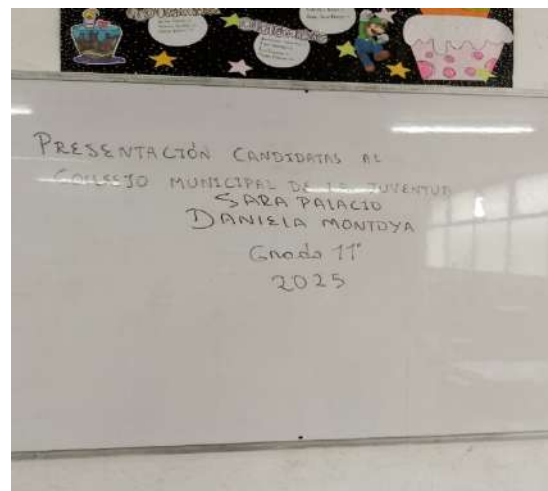 PRESENTACIÓN CANDIDATAS AL
CONSEJO MUNICIPAL DE LA JUVENTUD
SARA PALACIO
DANIELA MONTOYA
Grado 11°
2025